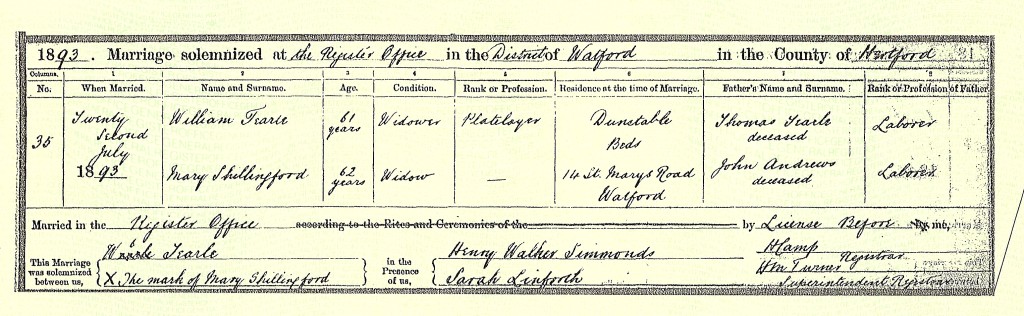 1893. Marriage solemnized at the Register Office in the District of Watford in the County of Hertford
Columns. 1 2 3 4 5 6 7 8
No. When Married. Name and Surname. Age. Condition. Rank or Profession. Residence at the time of Marriage. Father's Name and Surname. Rank or Profession of Father
35 Twenty Second July 1893 William Tearle 61 years Widower Platelayer Dunstable Beds Thomas Tearle deceased Laborer
Mary Shillingford 62 years Widow — 14 St. Marys Road Watford John Andrews deceased Laborer
Married in the Register Office according to the Rites and Ceremonies of the by License Before by me,
This Marriage was solemnized between us, Tearle in the Presence of us, Henry Walker Simmonds HCamp Registrar
X The mark of Mary Shillingford Sarah Linforth Hm Turner Superintendent Registrar